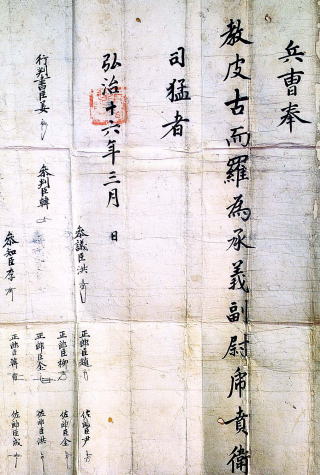 兵曺奉
敎皮古而羅為承義副尉虎賁衛
司猛者
弘治十六年三月　日
行判書臣姜
參判臣韓
參議臣洪
參知臣李
正郎臣趙
正郎臣柳
正郎臣金
正郎臣韓
佐郎臣尹
佐郎臣金
佐郎臣洪
佐郎臣成